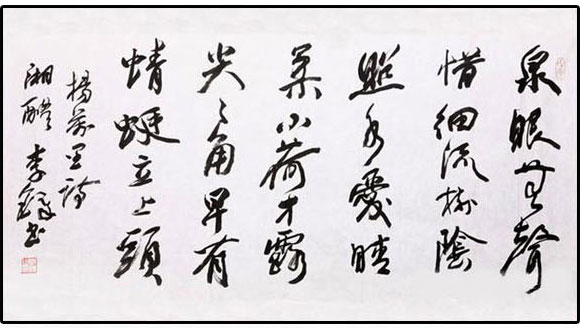 泉眼無聲
惜細流樹陰
照水愛晴
柔小荷才露
尖〻角早有
蜻蜓立上頭
楊萬里詩
湘醴李鐸書